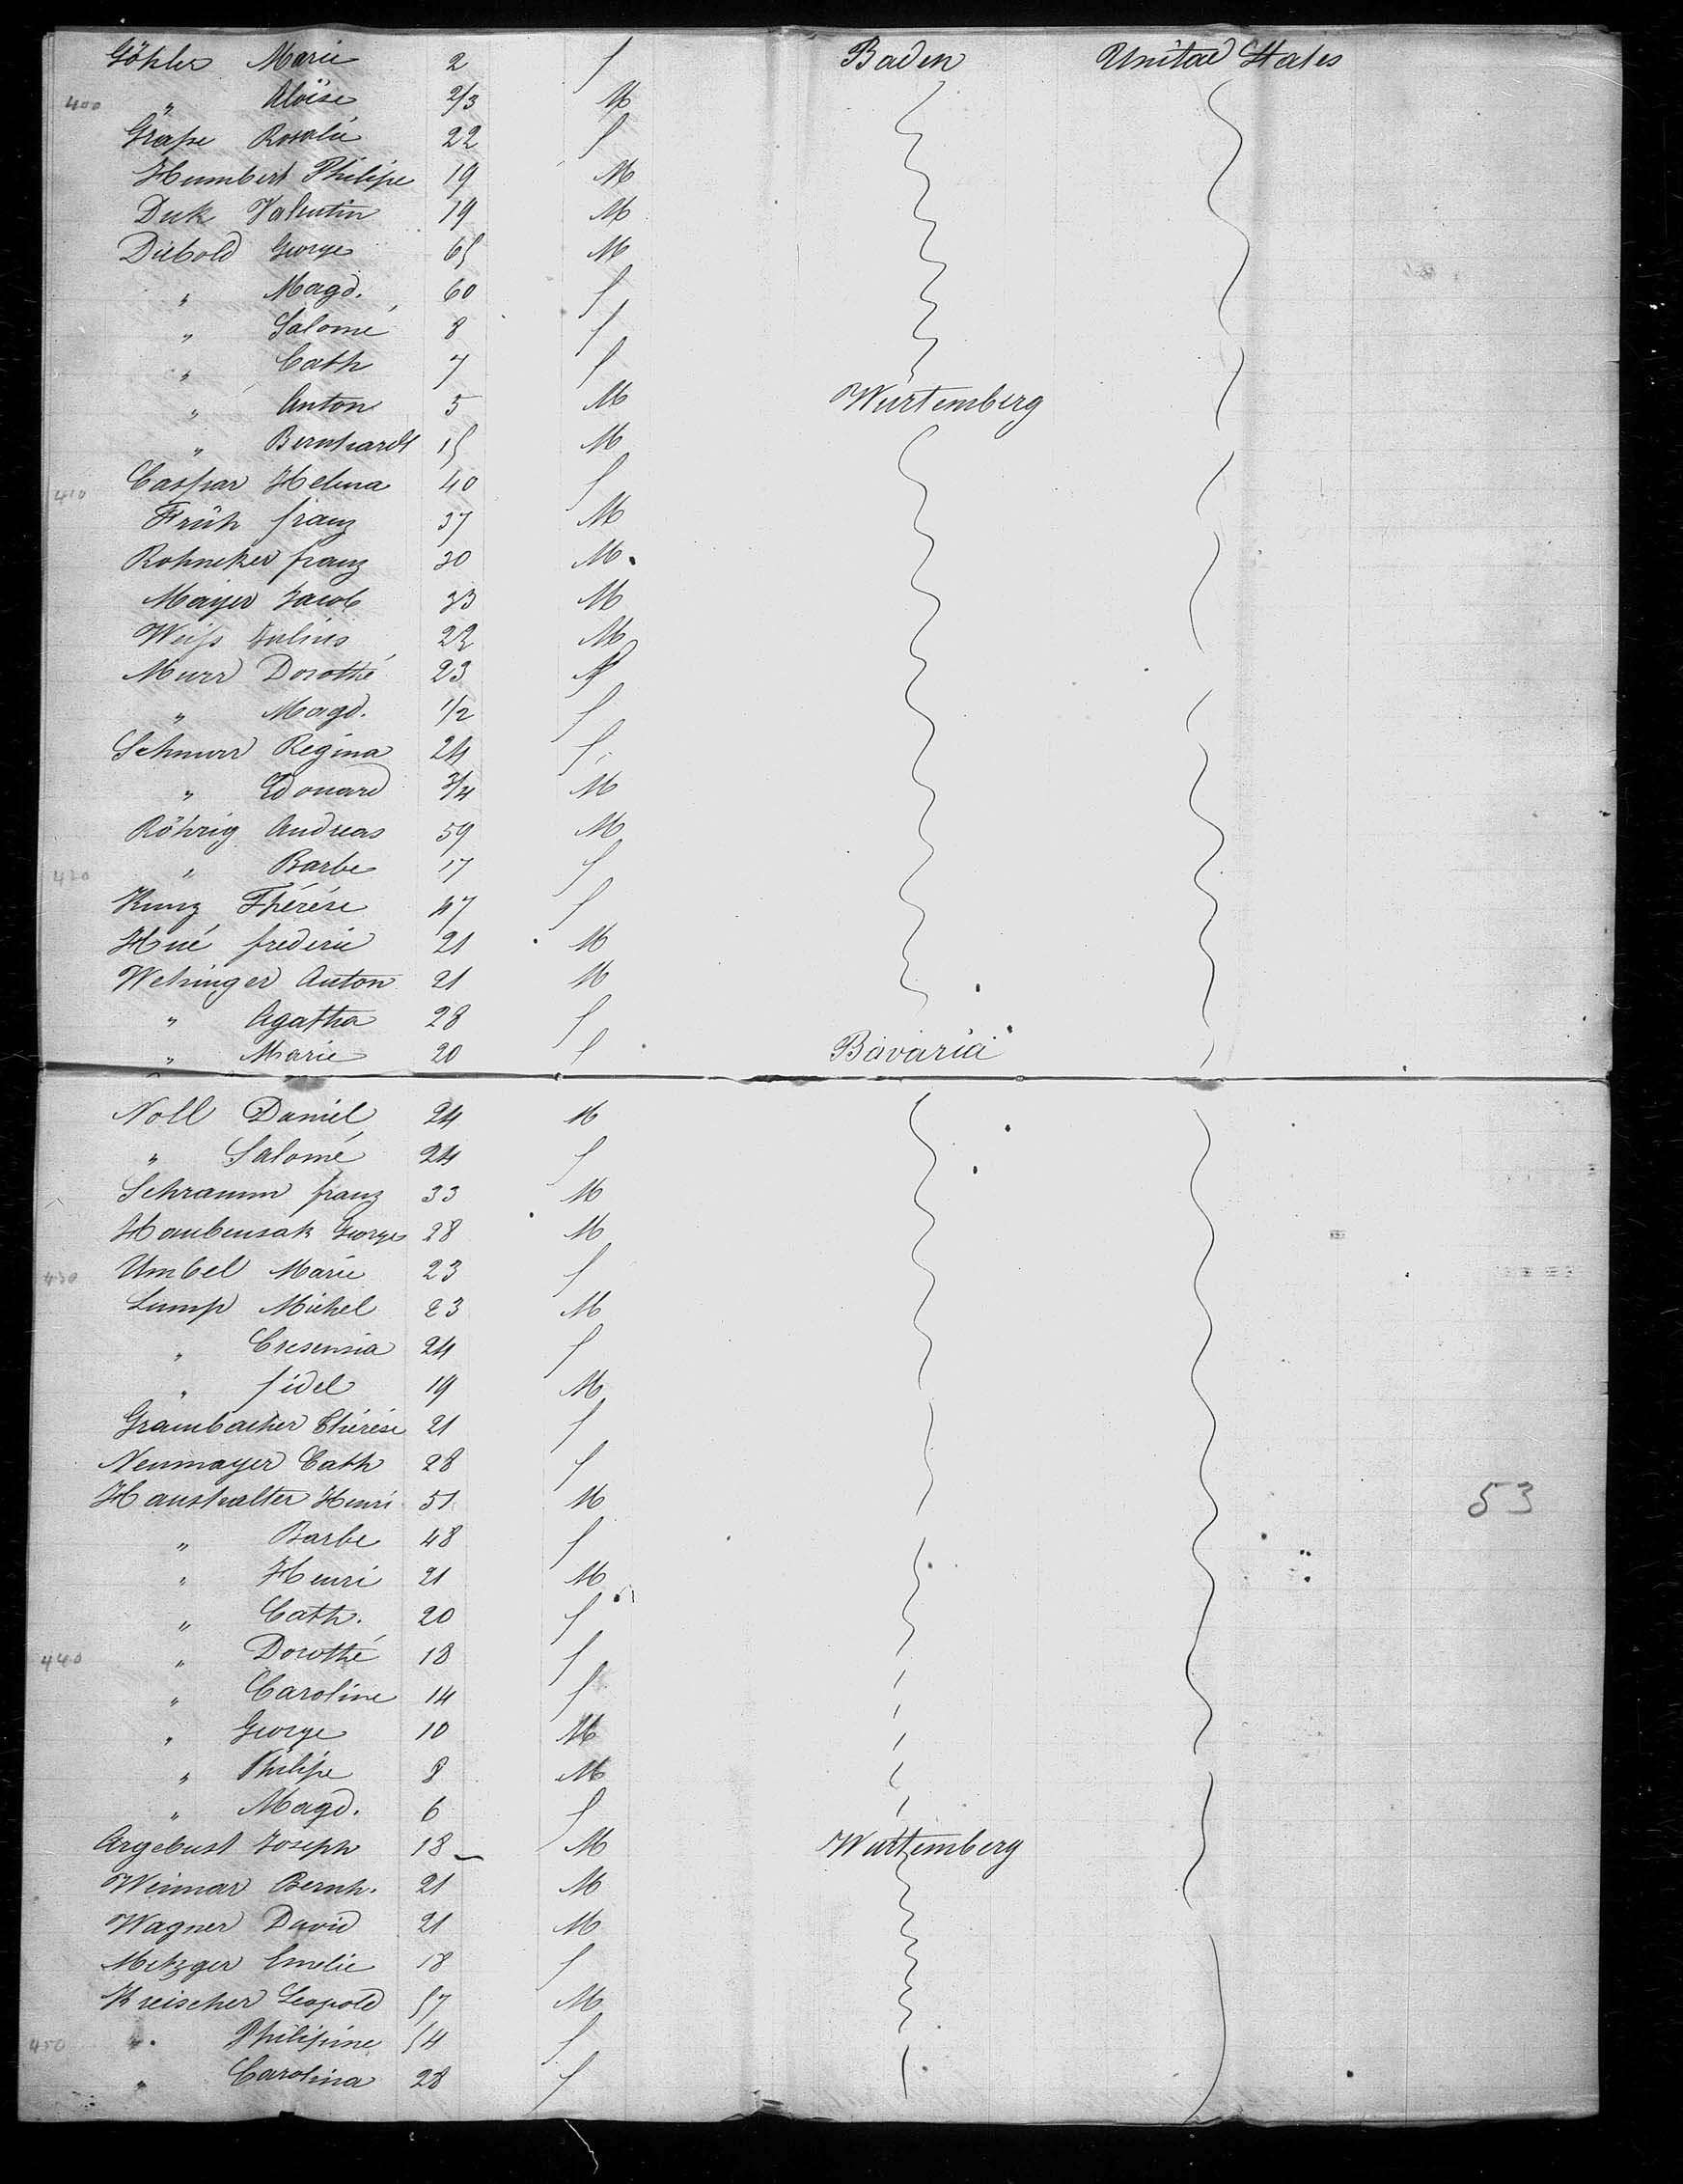 Göhler Marie 2 f Baden United States
400 " Aloise 2/3 M
Grape Rosalie 22 f
Humbert Philipe 19 M
Duk Valentin 19 M
Diebold George 65 M
" Magd. 60 f
" Salomé 8 f
" Cath 7 f
" Anton 5 M Wurtemberg
" Bernhardt 15 M
410 Caspar Helena 40 f
Früh franz 37 M
Rohneker franz 30 M
Mayer Jacob 33 M
Weiss Julius 22 M
Murr Dorothé 23 f
" Magd. 1/2 f
Schnurr Regina 24 f
" Edouard 3/4 M
Röhrig Andreas 59 M
420 " Barbe 17 f
Kunz Thérése 47 f
Hué frederic 21 M
Wehinger Anton 21 M
" Agatha 28 f
" Marie 20 f Bavaria
Noll Daniel 24 M
" Salomé 24 f
Schramm franz 33 M
Haubensak George 28 M
430 Umbel Marie 23 f
Lump Michel 23 M
" Cresensia 24 f
" fidel 19 M
Grambacher Thérése 21 f
Neumayer Cath 28 f
Haushalter Henri 51 M 53
" Barbe 48 f
" Henri 21 M
" Cath. 20 f
440 " Dorothé 18 f
" Caroline 14 f
" George 10 M
" Philipe 8 M
" Magd. 6 f
Argebust Joseph 18 M Wurtemberg
Weimar Bernh. 21 M
Wagner David 21 M
Metzger Emelie 18 f
Kreischer Leopold 57 M
450 " Philipine 54 f
" Carolina 28 f